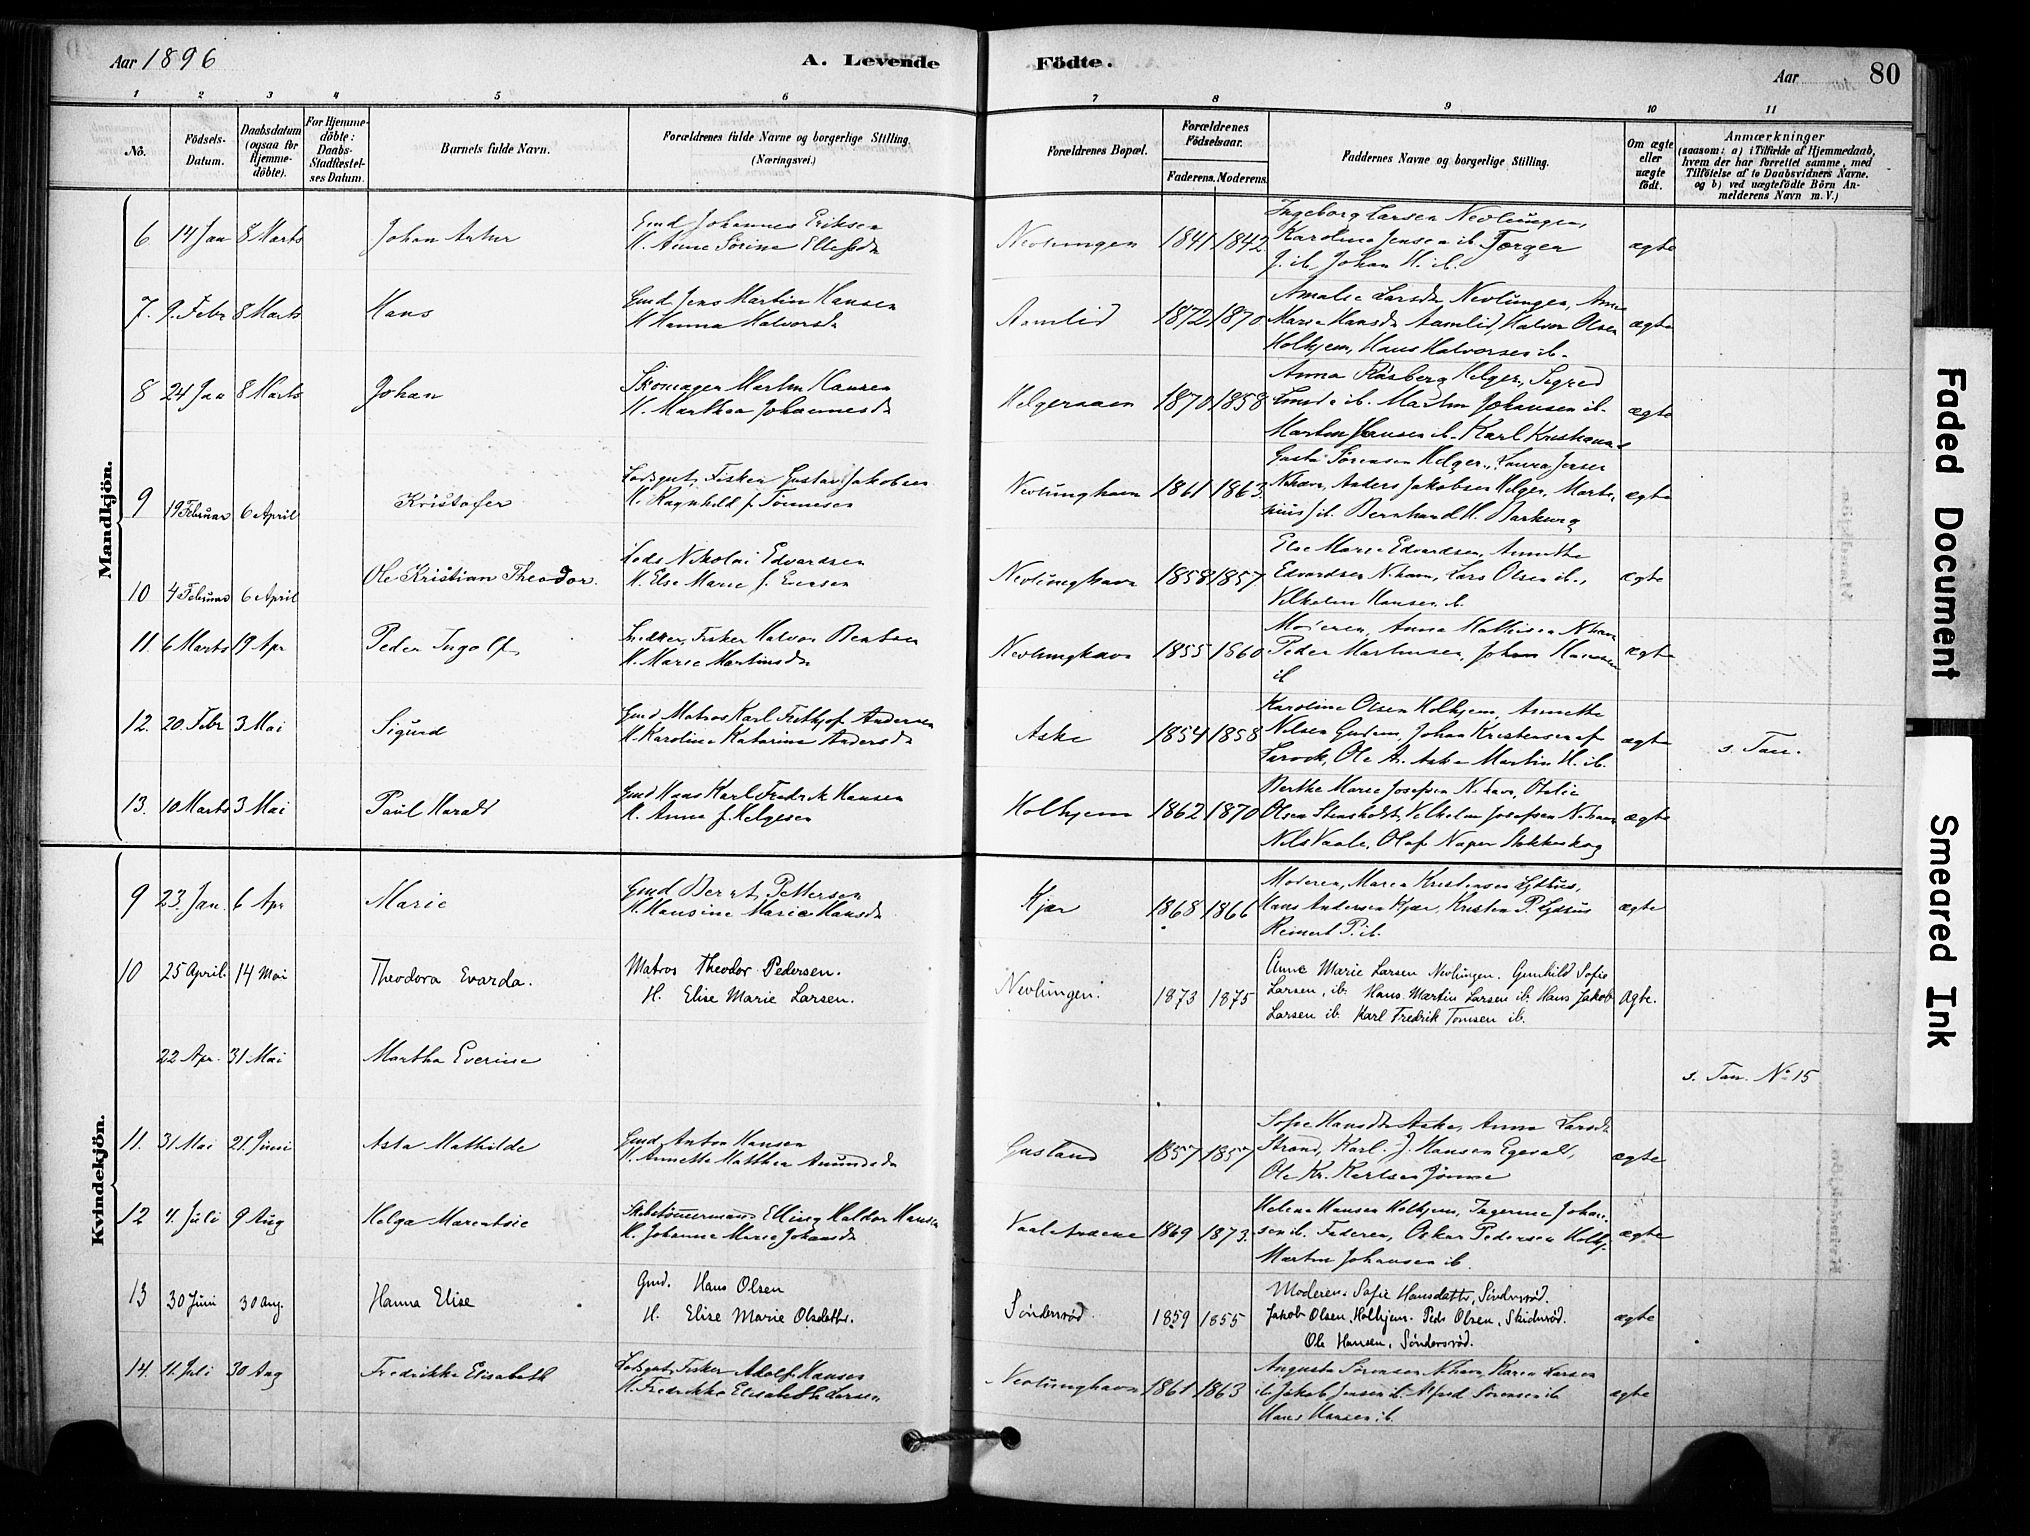 Aar 1896
A. Levende
Födte.
Aar
80
1 2 3 4 5 6 7 8 9 10 11
No.
Födsels-
Datum.
Daabsdatum
(ogsaa for
Hjemme-
döbte).
For Hjemme-
döbte:
Daabs-
Stadfæstel-
ses Datum.
Barnets fulde Navn.
Forældrenes fulde Navne og borgerlige Stilling.
(Næringsvei.)
Forældrenes Bopæl.
Forældrenes
Födselsaar.
Faderens. Moderens.
Faddernes Navne og borgerlige Stilling.
Om ægte
eller
uægte
födt.
Anmærkninger
(saasom: a) i Tilfælde af Hjemmedaab,
hvem der har forrettet samme, med
Tilföielse af to Daabsvidners Navne.
og b) ved uægtefödte Börn An-
melderens Navn m. V.)
Mandkjön.
6 14 Jan 8 Marts Johan Artur
Gmd Johannes Eriksen
H. Anne Sörine Ellefsd
Nevlungen 1841 1842
Ingeborg Larsen Nevlungen,
Karoline Jensen ib. Torger
J. ib. Johan H. ib.
ægte
7. 9. Febr 8 Marts Hans
Gmd Jens Martin Hansen
H Hanna Halvorsd
Aamlid 1872 1870
Amalie Larsd Nevlungen, Anne
Marie Hansd Aamlid Halvor Olsen
Holhjem, Hans Halvorsen ib.
ægte
8 24 Jan 8 Marts Johan
Skomager Martin Hansen
H. Marthea Johannesd
Helgeraaen 1870 1858
Anna Helger., Sigrid
ib. Martin Johansen ib.
Martin Hansen ib. Karl
ægte
9 19 Februar 6 April Kristofer
Lodsgut, Fisker Gustav Jakobsen
H. Ragnhild f. Tönnesen
Nevlunghavn 1861 1863
Sörensen Helger., Laura Jensen
N.havn, Anders Jakobsen Helger, Marti-
nius J. ib. Bernhard H. Barkevig
ægte
10 4 Februar 6 April Ole Kristian Theodor
Lods Nikolai Edvardsen
H. Else Marie f. Evensen
Nevlunghavn 1858 1857
Else Marie Edvardsen, Annette
Edvardsen N.havn, Lars Olsen ib.,
Vilhelm Hansen ib.
ægte
11 6 Marts 19 Apr Peder Ingolf
Fisker Halvor Bentsen
H. Marie Martinsd
Nevlunghavn 1855 1860
Moderen, Anna Mathisen N.havn
Peder Martinsen, Johan Hansen
ib
ægte
12. 20. Febr 3 Mai Sigurd
Gmd Matros Karl Fridthjof Andersen
H. Karoline Katarine Andersd
Aske 1854 1858
Karoline Olsen Holhjem, Annette
Nilsen Gudem, Johan Kristensen af
Larvik, Ole A. Aske Martin H. ib.
ægte
s. Tan.
13. 10 Marts 3 Mai Paul Harald
Gmd Hans Karl Fredrik Hansen
H. Anna f. Helgesen
Holhjem 1862 1870
Berthe Marie Josefsen N.havn, Otelie
Olsen Stensholdt, Vilhelm Josefsen N.havn
Nils Vaale, Olaf
ægte
Kvindekjön.
9 23. Jan. 6 Apr Marie
Gmd Bernt Pettersen
H. Hansine Marie Hansd
Kjær 1868 1866
Moderen, Maren Kristensen
Hans Andersen Kjær, Kristen P.
Reinert P. ib.
ægte
10 25 April. 14 Mai Theodora Evarda.
Matros Theodor Pedersen.
H. Elise Marie Larsen.
Nevlungen. 1873 1875
Anne Marie Larsen Nevlungen. Gunhild Sofie
Larsen, ib. Hans Martin Larsen ib. Hans Jakob
Larsen ib. Karl Fredrik Tomsen ib.
Ægte.
22 Apr. 31 Mai Martha Everine
s. Tan. No 15
11. 31 Mai 21. Juni Asta Mathilde
Gmd Anton Hansen
H. Annette Matthea Amundsd
Gusland 1857 1857
Sofie Hansd Aske, Anne Larsd
Strand, Karl J. Hansen Egevald,
Ole Kr. Karlsen Jönne
ægte
12 4. Juli 9 Aug Helga Marentsie
Skibstömmermand Elling Haldor Hansen
H. Johanne Marie Johansd
Vaal Aaserne 1869 1873.
Helene Hansen Holhjem, Ingerine Johan-
sen ib. Faderen, Oskar Pedersen Holhj.
Martin Johansen ib.
ægte
13 30 Juni 30 Aug. Hanna Elise
Gmd. Hans Olsen
H. Elise Marie Olsdatter.
Söndersröd 1859 1855
Moderen. Sofie Hansdatter, Söndersröd.
Jakob Olsen, Holhjem. Peder Olsen, Skidsröd.
Ole Hansen, Söndersröd.
ægte
14. 11. Juli 30 Aug Fredrikke Elisabeth
Lodsgut, Fisker Adolf Hansen
H. Fredrikke Elisabeth Larsen
Nevlunghavn 1861 1863
Augusta Sörensen N.havn, Karen Larsen
ib. Jakob Jensen ib. Alfred Sörensen ib.
Hans Hansen ib.
ægte
Faded Document
Smeared Ink